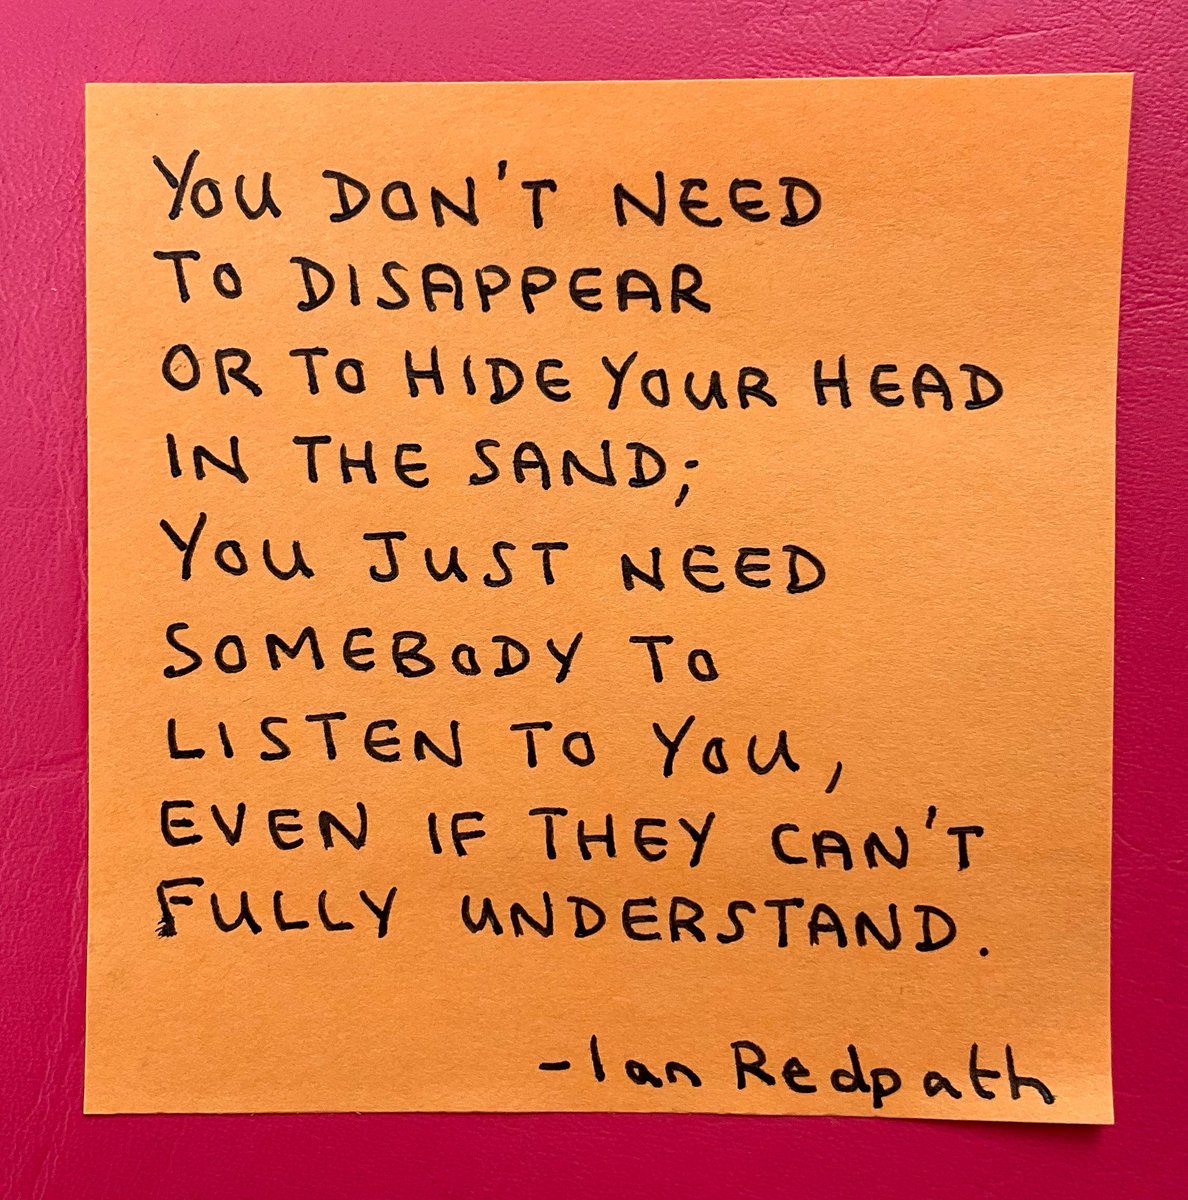 YOU DON'T NEED
TO DISAPPEAR
OR TO HIDE YOUR HEAD
IN THE SAND;
YOU JUST NEED
SOMEBODY TO
LISTEN TO YOU,
EVEN IF THEY CAN'T
FULLY UNDERSTAND.
-Ian Redpath